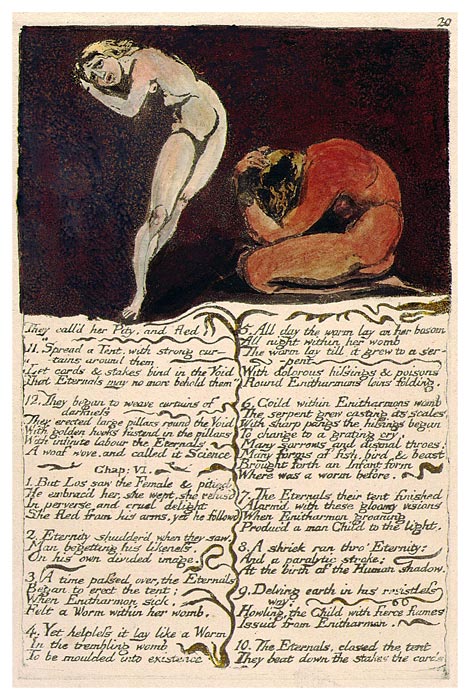 20
They call'd her Pity, and fled
11. "Spread a Tent, with strong cur-
-tains around them
Let cords & stakes bind in the Void
That Eternals may no more behold them"
12. They began to weave curtains of
darkness
They erected large pillars round the Void
With golden hooks fastend in the pillars
With infinite labour the Eternals
A woof wove, and called it Science
Chap: VI.
1. But Los saw the Female & pitied
He embrac'd her, she wept, she refus'd
In perverse and cruel delight
She fled from his arms, yet he followd
2. Eternity shudder'd when they saw,
Man begetting his likeness,
On his own divided image.
3. A time passed over, the Eternals
Began to erect the tent;
When Enitharmon sick,
Felt a Worm within her womb.
4. Yet helpless it lay like a Worm
In the trembling womb
To be moulded into existence
5. All day the worm lay on her bosom
All night within her womb
The worm lay till it grew to a ser-
-pent
With dolorous hissings & poisons
Round Enitharmons loins folding,
6. Coild within Enitharmons womb
The serpent grew casting its scales,
With sharp pangs the hissings began
To change to a grating cry,
Many sorrows and dismal throes,
Many forms of fish, bird & beast
Brought forth an Infant form
Where was a worm before.
7. The Eternals their tent finished
Alarm'd with these gloomy visions
When Enitharmon groaning
Produc'd a man Child to the light.
8. A shriek ran thro' Eternity:
And a paralytic stroke;
At the birth of the Human shadow.
9. Delving earth in his resistless
way;
Howling, the Child with fierce flames
Issu'd from Enitharmon.
10. The Eternals, closed the tent
They beat down the stakes the cords